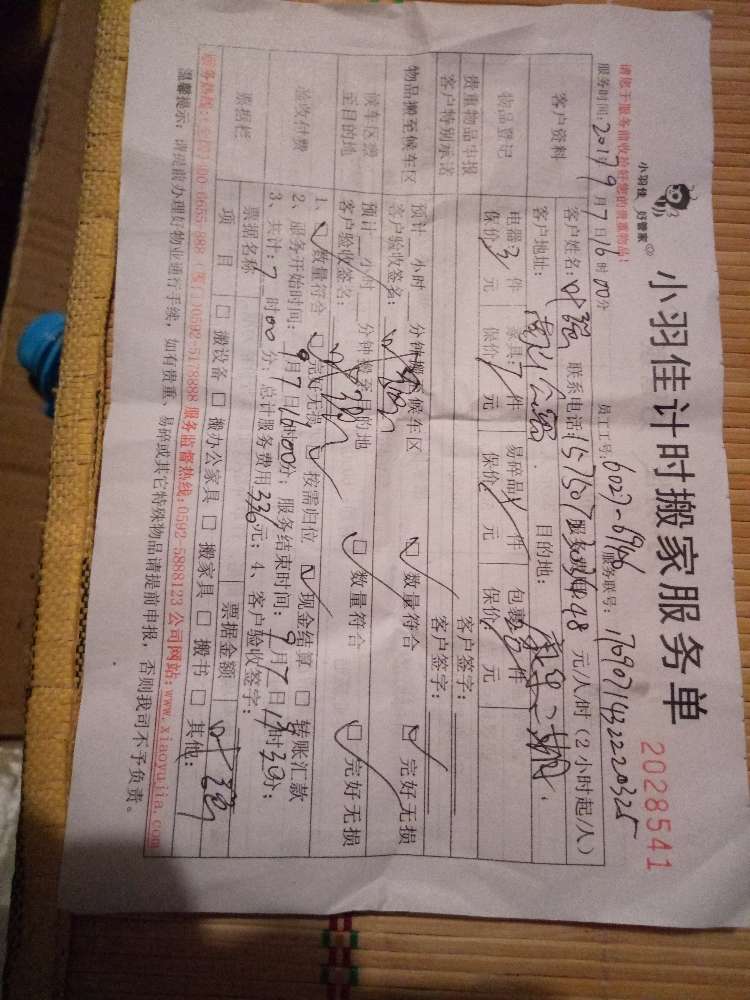 小羽佳 好管家
小羽佳计时搬家服务单
2028541
请您于服务前收拾好您的贵重物品!
员工工号: 6027-6946 服务联号: 1769071432220325
服务时间: 2017 9月7日16时00分
客户资料
客户姓名: 叶强 联系电话: 服务费 48 元/人/时(2小时起/人)
客户地址: 目的地:
物品登记
电器3件 家具:7件 易碎品 件 包裹 件
保价 元 保价 元 保价 元 保价: 元
贵重物品申报 客户签字:
客户特别承诺 客户签字:
物品搬至候车区
预计 小时 分钟搬至候车区 数量符合 完好无损
客户验收签名: 叶强
候车区搬至目的地
预计 小时 分钟搬至目的地 数量符合 完好无损
客户验收签名: 叶强
验收付费
1、 数量符合 完好无损 按需归位 现金结算 转账汇款
2、服务开始时间: 9月7日16时00分; 服务结束时间: 9月7日 时30分;
3、共计: 7时00分; 总计服务费用336元; 4、客户验收签字: 叶强
票据栏
票据名称 票据金额
项目 搬设备 搬办公家具 搬家具 搬书 其他:
服务监督热线: 0592-5888123 公司网站: www.xiaoyujia.com
温馨提示: 请提前办理好物业通行手续, 如有贵重、易碎或其它特殊物品请提前申报, 否则我司不予负责。